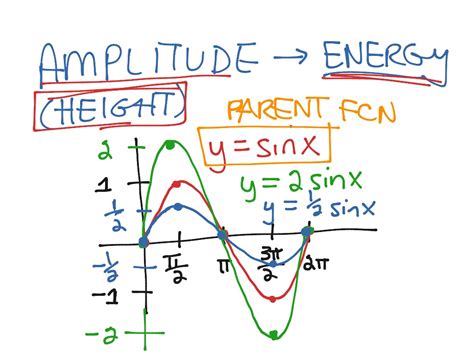 AMPLITUDE → ENERGY
(HEIGHT)
PARENT FCN
y = sinx
y = 2 sinx
y = ½ sinx
2
1
½
-½
-1
-2
π/2
π
3π/2
2π